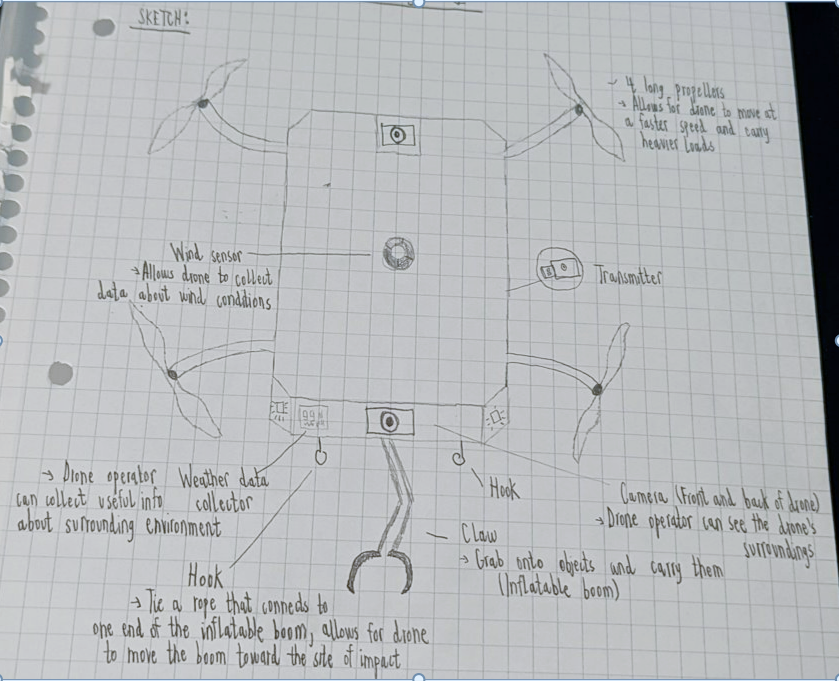 SKETCH:
→ 4 long propellers
→ Allows for drone to move at
a faster speed and carry
heavier loads
Wind sensor
→ Allows drone to collect
data about wind conditions
Transmitter
→ Drone operator
can collect useful info
about surrounding environment
Weather data
collector
Hook
Camera (Front and back of drone)
→ Drone operator can see the drone's
surroundings
Claw
→ Grab onto objects and carry them
(Inflatable boom)
Hook
→ Tie a rope that connects to
one end of the inflatable boom, allows for drone
to move the boom toward the site of impact